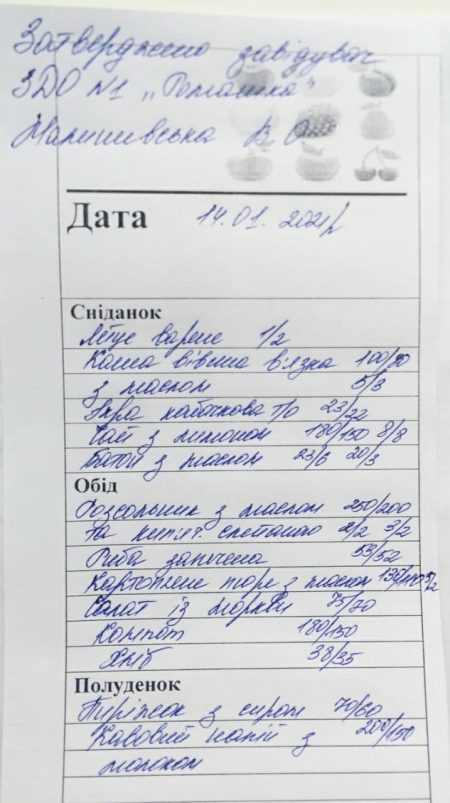 Затверджено завідувач
ЗДО №1 „Ромашка"
В О
Дата 14.01.2021р
Сніданок
Яйце варене 1/2
Каша вівсяна в'язка 100/90
з маслом 5/3
Ікра кабачкова т/о 23/22
Чай з лимоном 180/150 8/8
Батон з маслом 23/6 20/3
Обід
Розсольник з маслом 250/200
та кип'яч. сметаною 2/2 3/2
Риба запечена 59/52
Картопляне пюре з маслом 130/110 5/2
Салат із моркви 75/70
Компот 180/150
Хліб 38/35
Полуденок
Пиріжок з сиром 70/60
Кавовий напій з 200/150
молоком